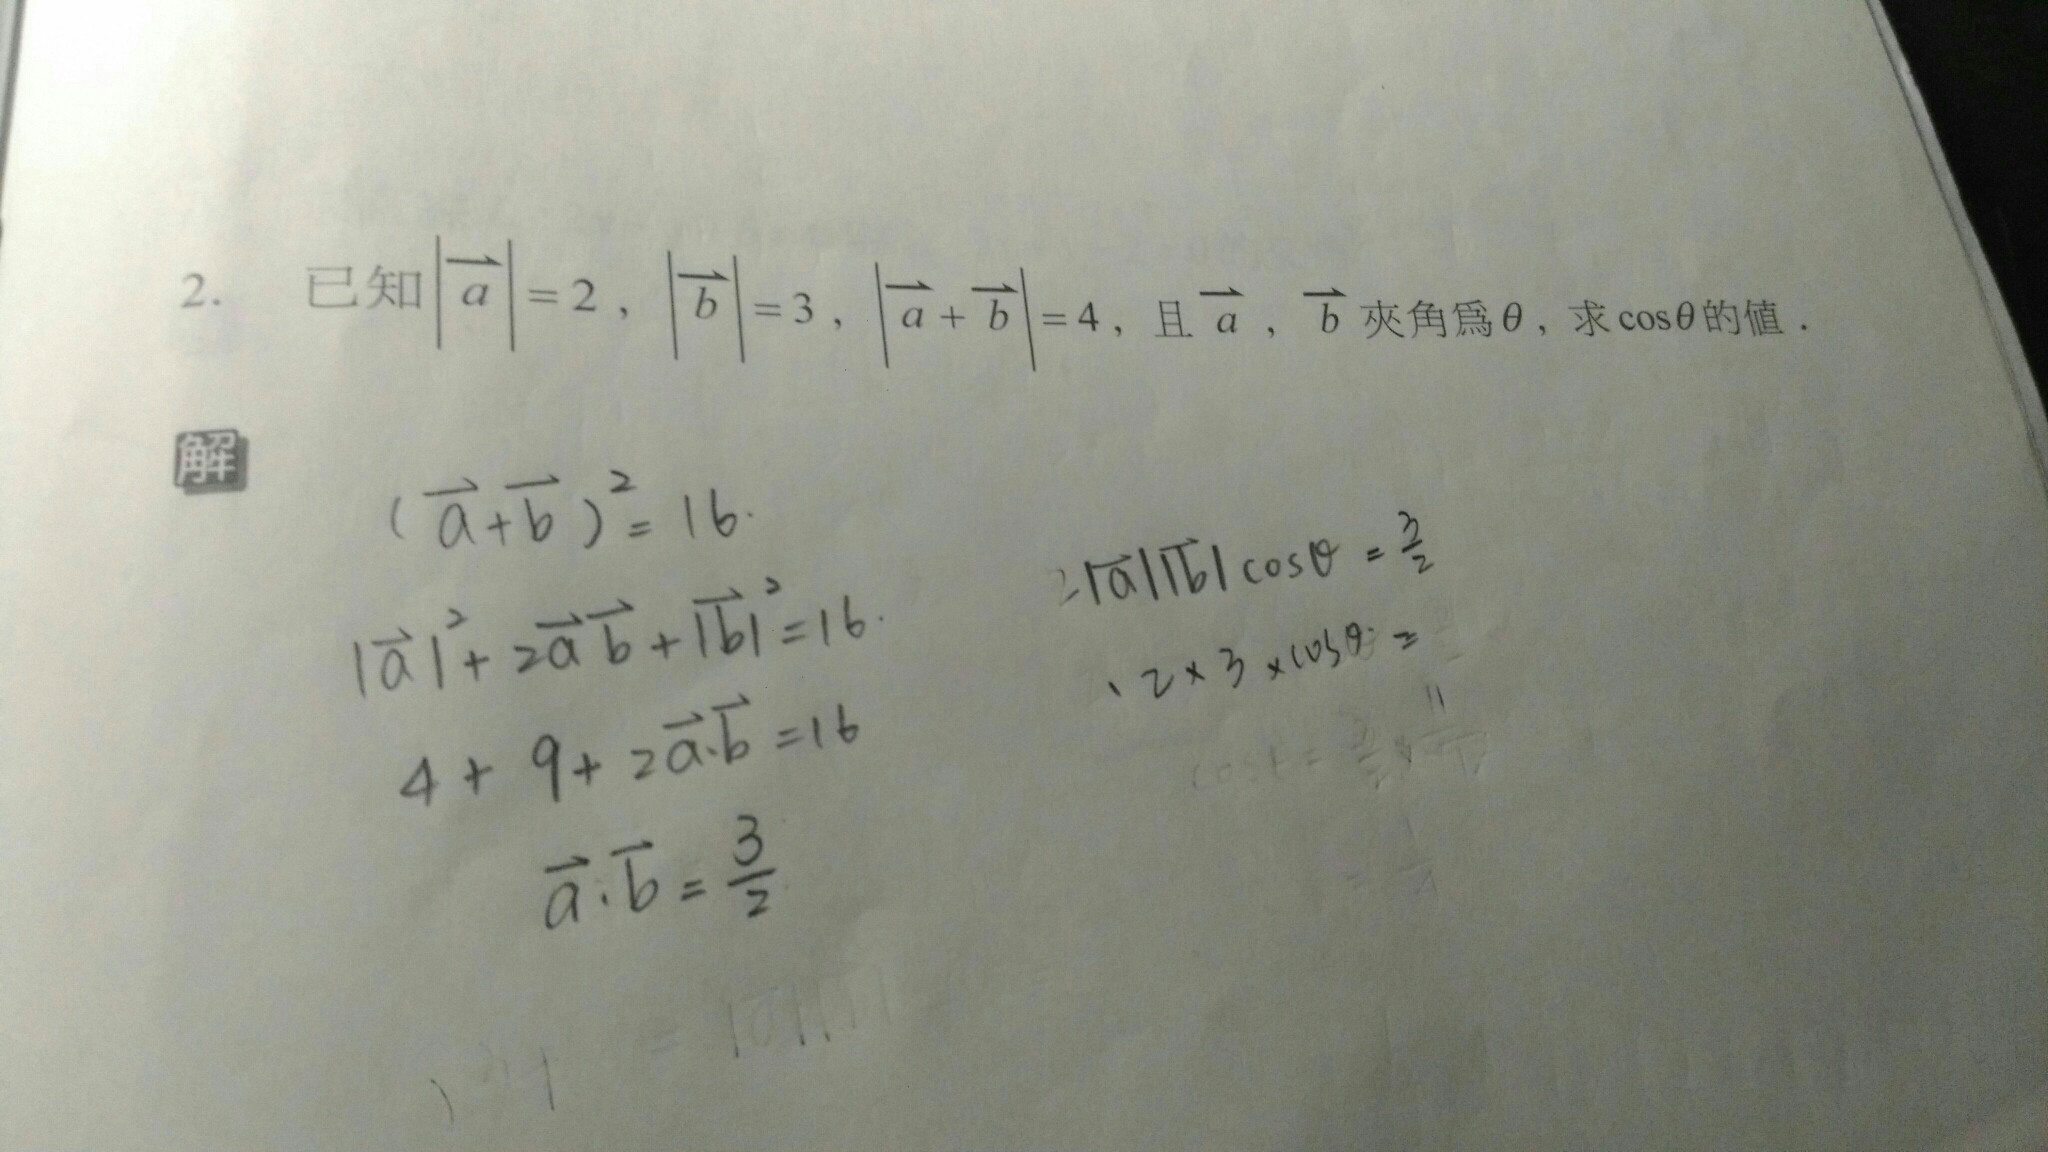 2. 已知|a⃗|=2，|b⃗|=3，|a⃗+b⃗|=4，且a⃗，b⃗夾角爲θ，求cosθ的值．
解
(a⃗+b⃗)²=16.
|a⃗|²+2a⃗b⃗+|b⃗|²=16.
4+9+2a⃗·b⃗=16
a⃗·b⃗=3/2
|a⃗||b⃗|cosθ=3/2
2×3×cosθ=